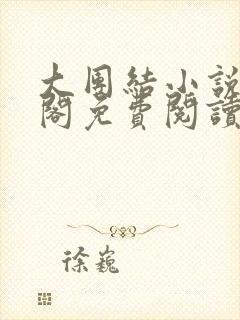 大團結小說
閣免費閱讀
徐巍